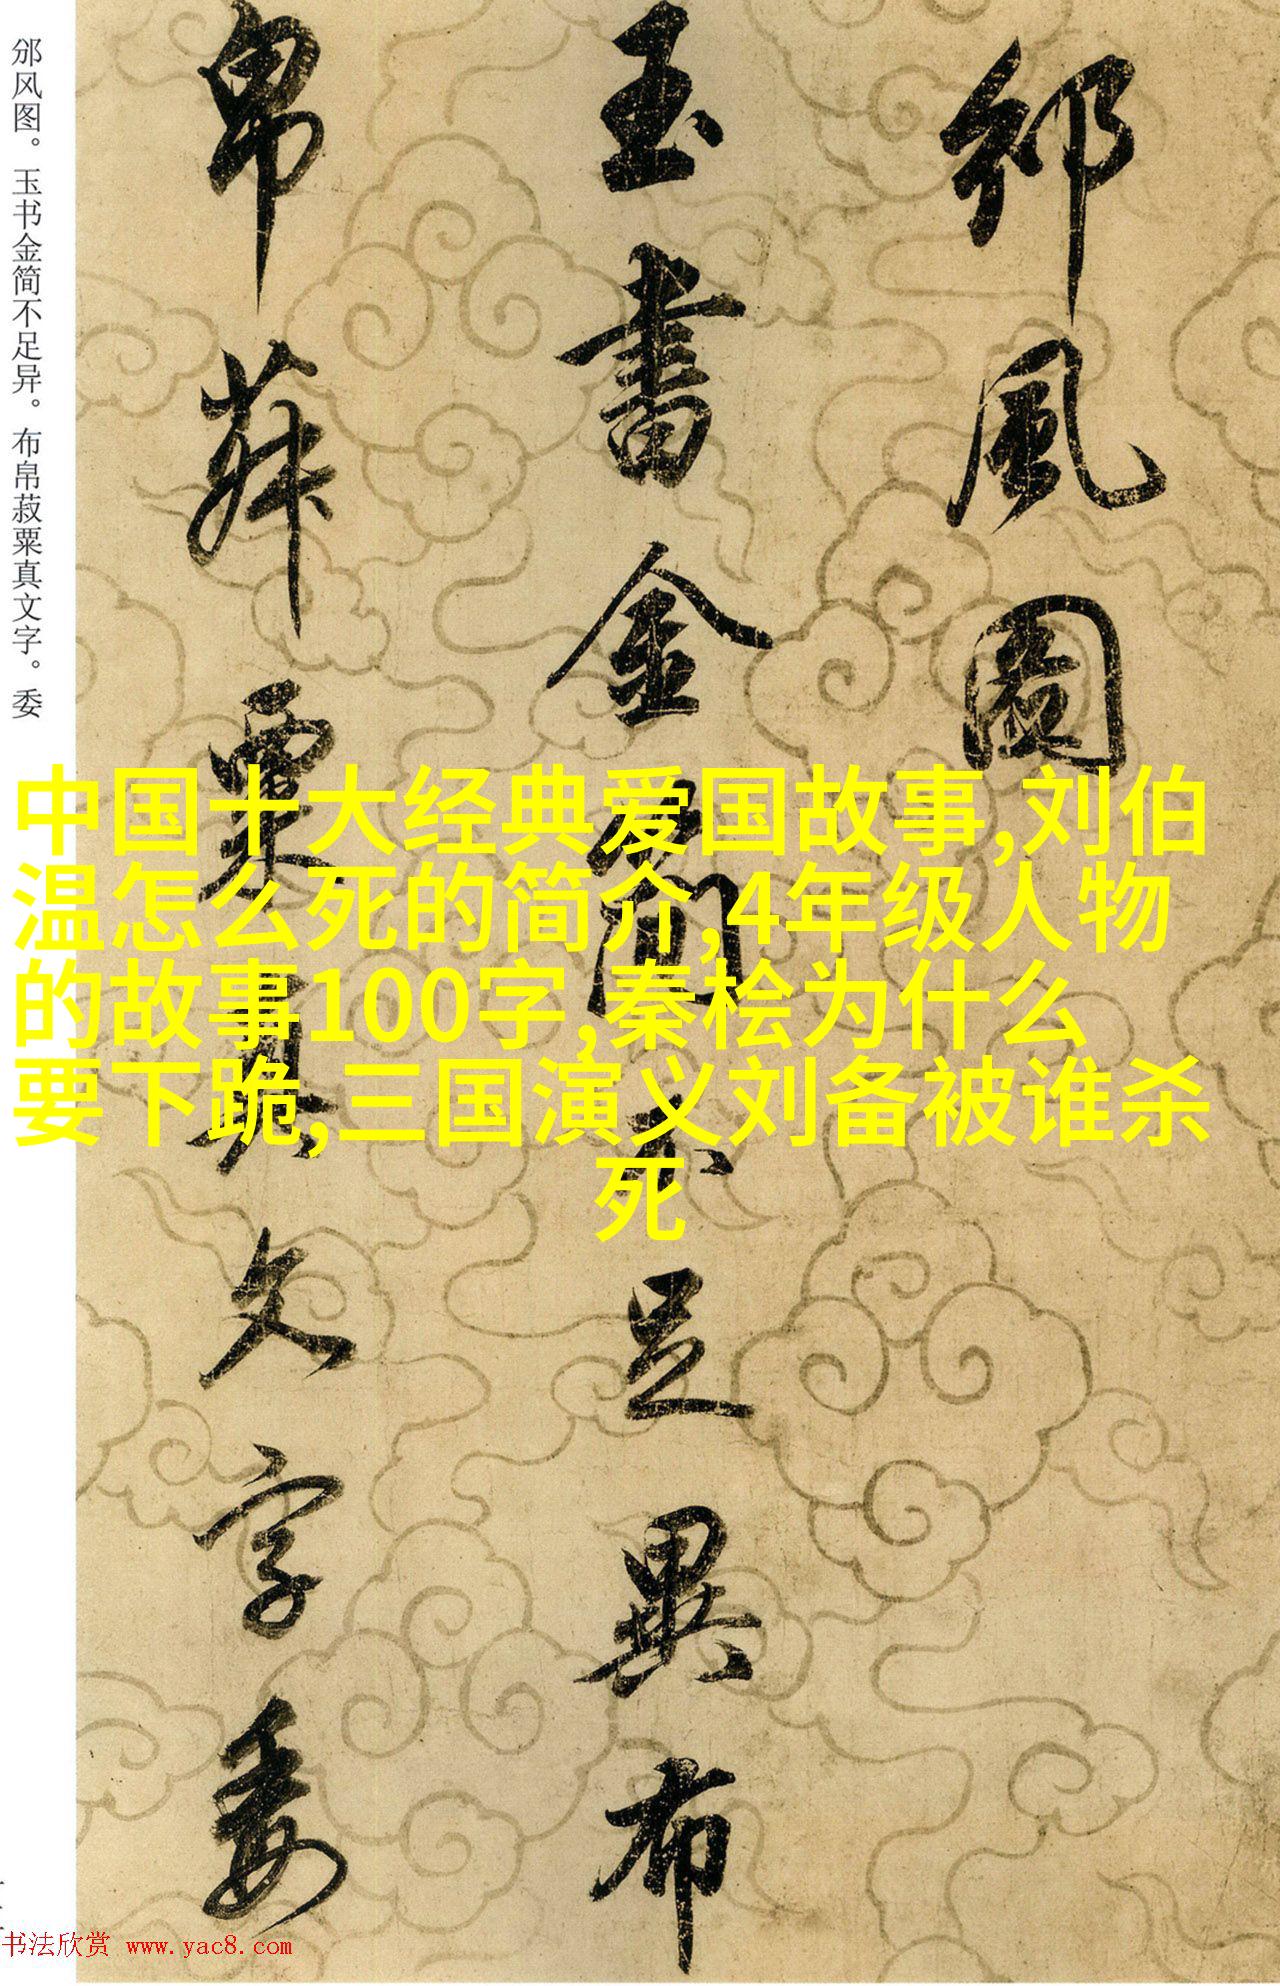 邠風圖
玉書金簡不足異布
帛菽粟真文字委
邠风图。玉书金简不足异。布帛菽粟真文字。委
中国十大经典爱国故事,刘伯
温怎么死的简介,4年级人物
的故事100字,秦桧为什么
要下跪,三国演义刘备被谁杀
死
书法欣赏 www.yac8.com